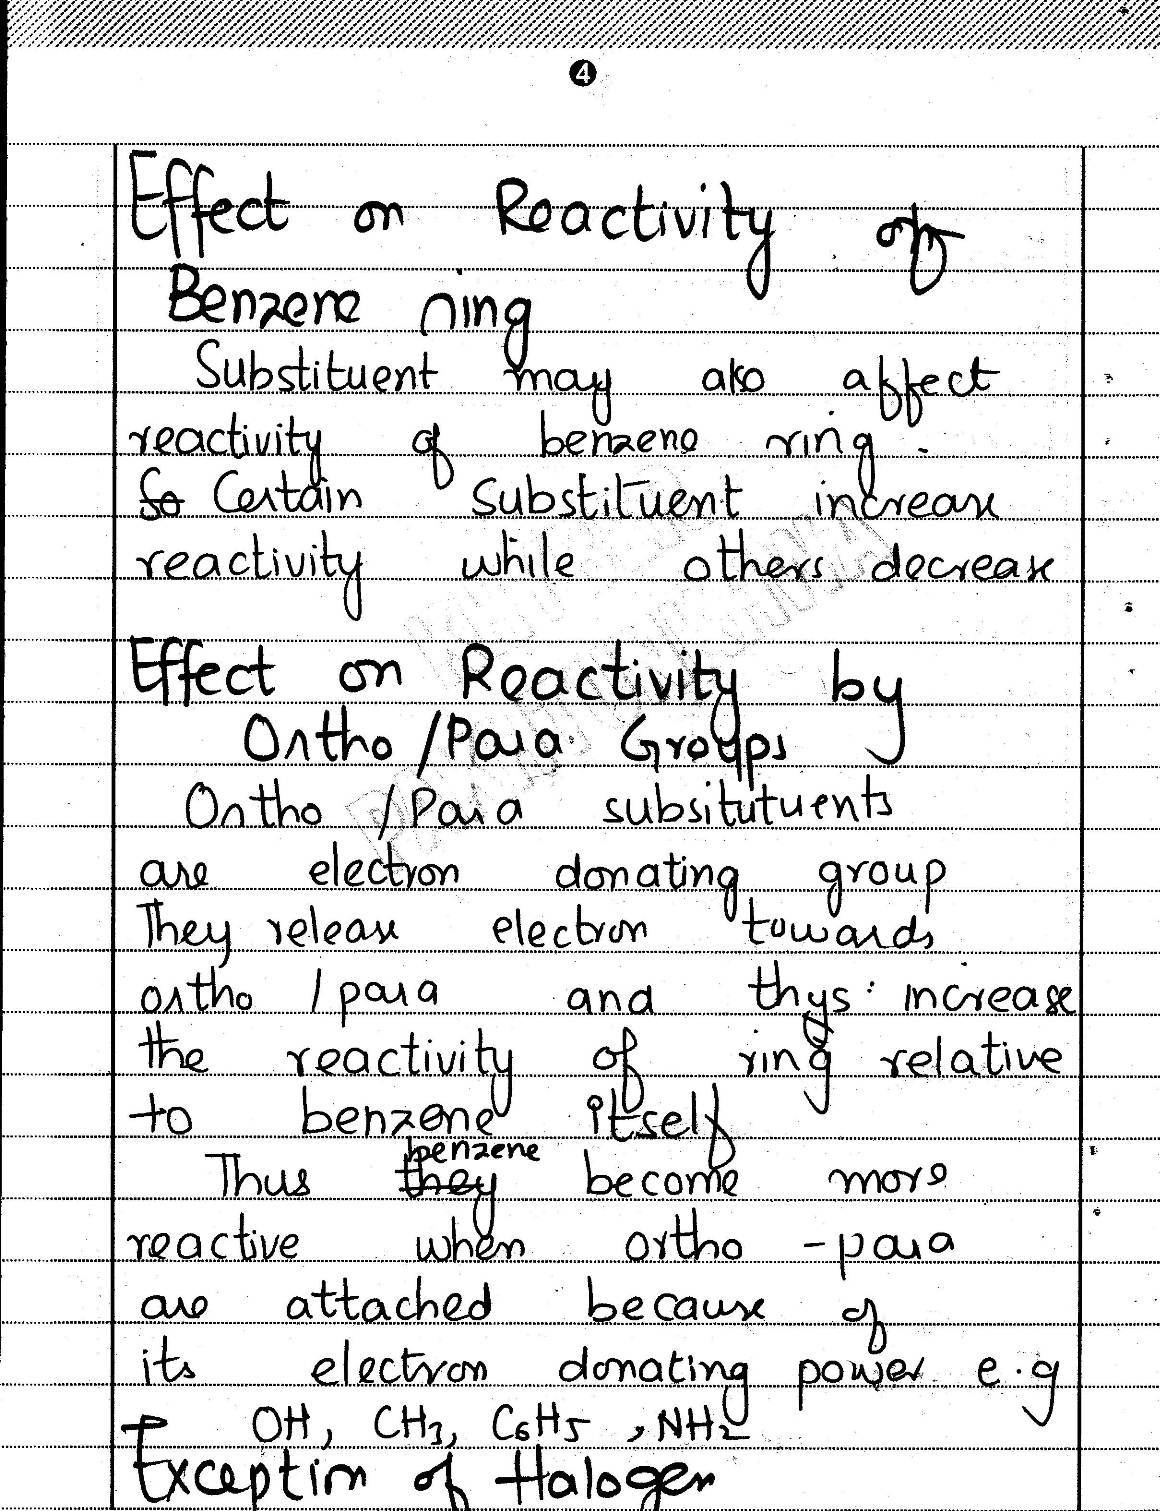 4
Effect on Reactivity of
Benzene ring
Substituent may also affect
reactivity of benzene ring.
So Certain substituent increase
reactivity while others decrease
Effect on Reactivity by
Ortho /Para Groups
Ortho /Para subsitutuents
are electron donating group
They release electron towards
ortho /para and thus increase
the reactivity of ring relative
to benzene itself
benzene
Thus they become more
reactive when ortho -para
are attached because of
its electron donating power e.g
OH, CH3, C6H5, NH2
Exception of Halogen